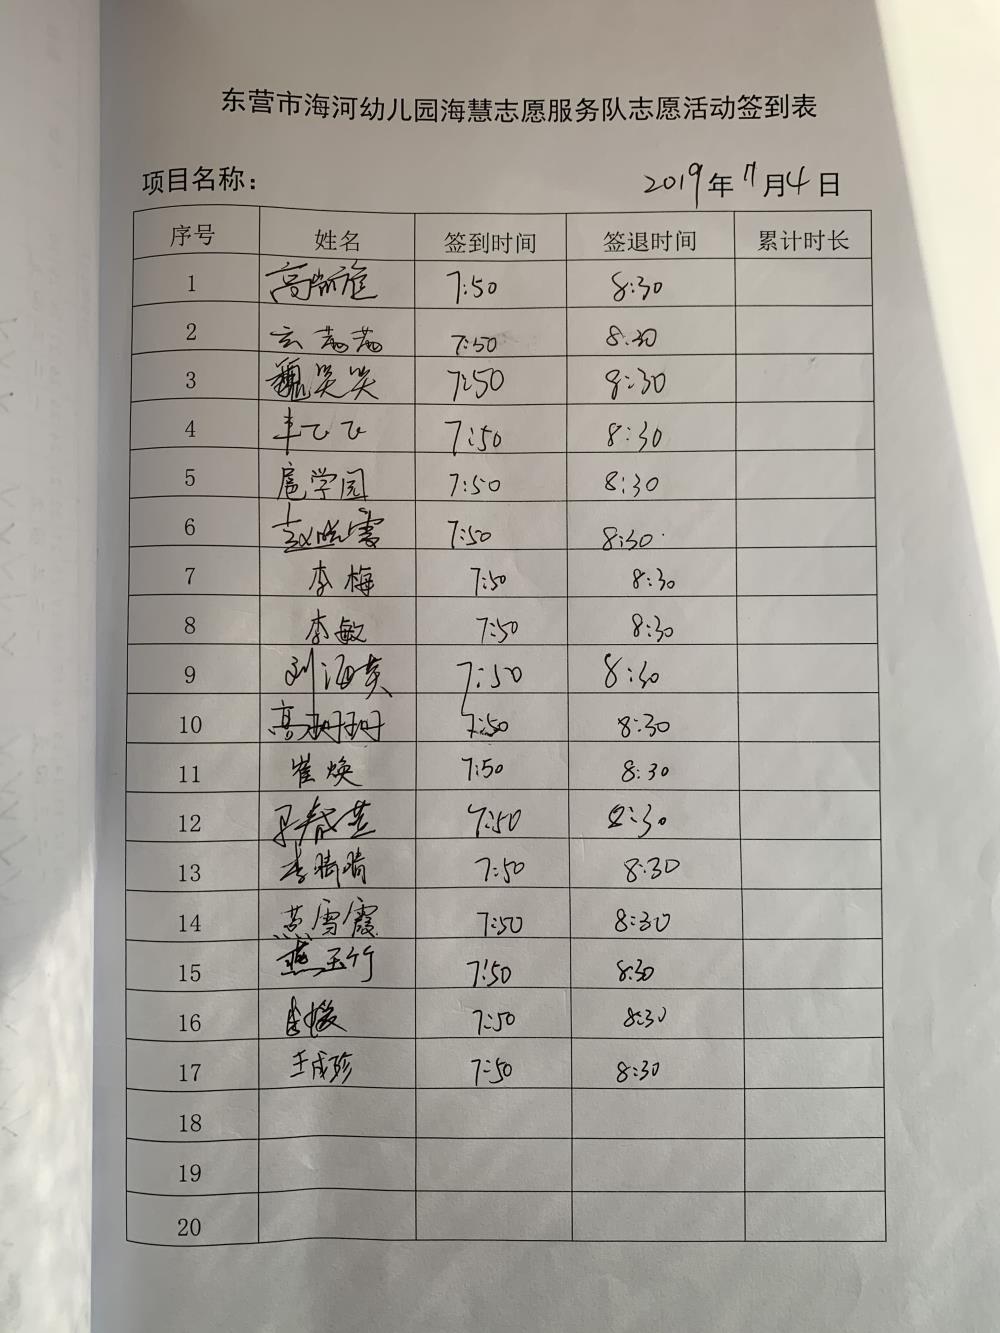 东营市海河幼儿园海慧志愿服务队志愿活动签到表
项目名称：
2019年11月4日
序号 姓名 签到时间 签退时间 累计时长
1 高 7:50 8:30
2 云茜茜 7:50 8:30
3 魏笑笑 7:50 8:30
4 丰飞飞 7:50 8:30
5 扈学园 7:50 8:30
6 赵晓霞 7:50 8:30
7 李梅 7:50 8:30
8 李敏 7:50 8:30
9 刘海英 7:50 8:30
10 高珊珊 7:50 8:30
11 崔焕 7:50 8:30
12 7:50 8:30
13 李晴晴 7:50 8:30
14 燕雪霞 7:50 8:30
15 燕玉竹 7:50 8:30
16 7:50 8:30
17 王成珍 7:50 8:30
18
19
20